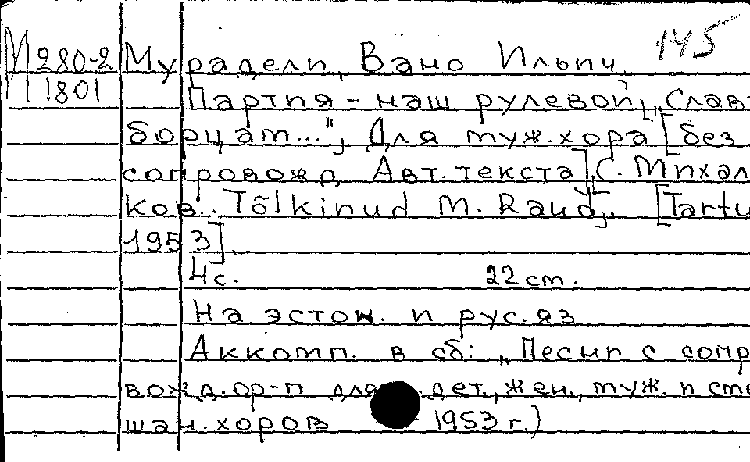 145
М280-2 Мурадели, Вано Ильич.
М1801 Партия - наш рулевой, „Слав
борцам...", Для муж. хора [без
сопровожд. Авт. текста], С. Михал
ков. Tõlkinud M. Raud,. [Tartu
1953].
4 с. 22 cm.
На эстон. и рус. яз
Аккомп. в сб: „Песни с сопр
вожд. ор-п для дет., жен., муж. и сме
шан. хоров 1953 г.)